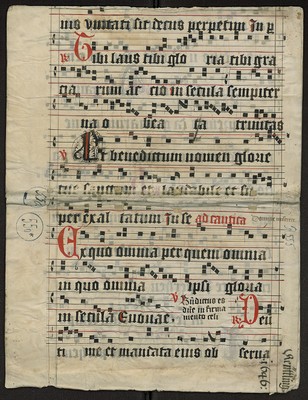 nis vnitati sit decus perpetim In p
℟ Tibi laus tibi glo ria tibi gra
tia rum ac cio in secula sempiter
na o bea ta trinitas
℣ Et benedictum nomen glorie
tue sanctum et laudabile et su
per exal tatum In se ad cantica
Ex quo omnia per quem omnia
in quo omnia ipsi gloria
in secula Euouae ℣ Bndictus es
dñe in firma
mento celi ℟ Dei
ti me et mandata eius ob serua
55
1646